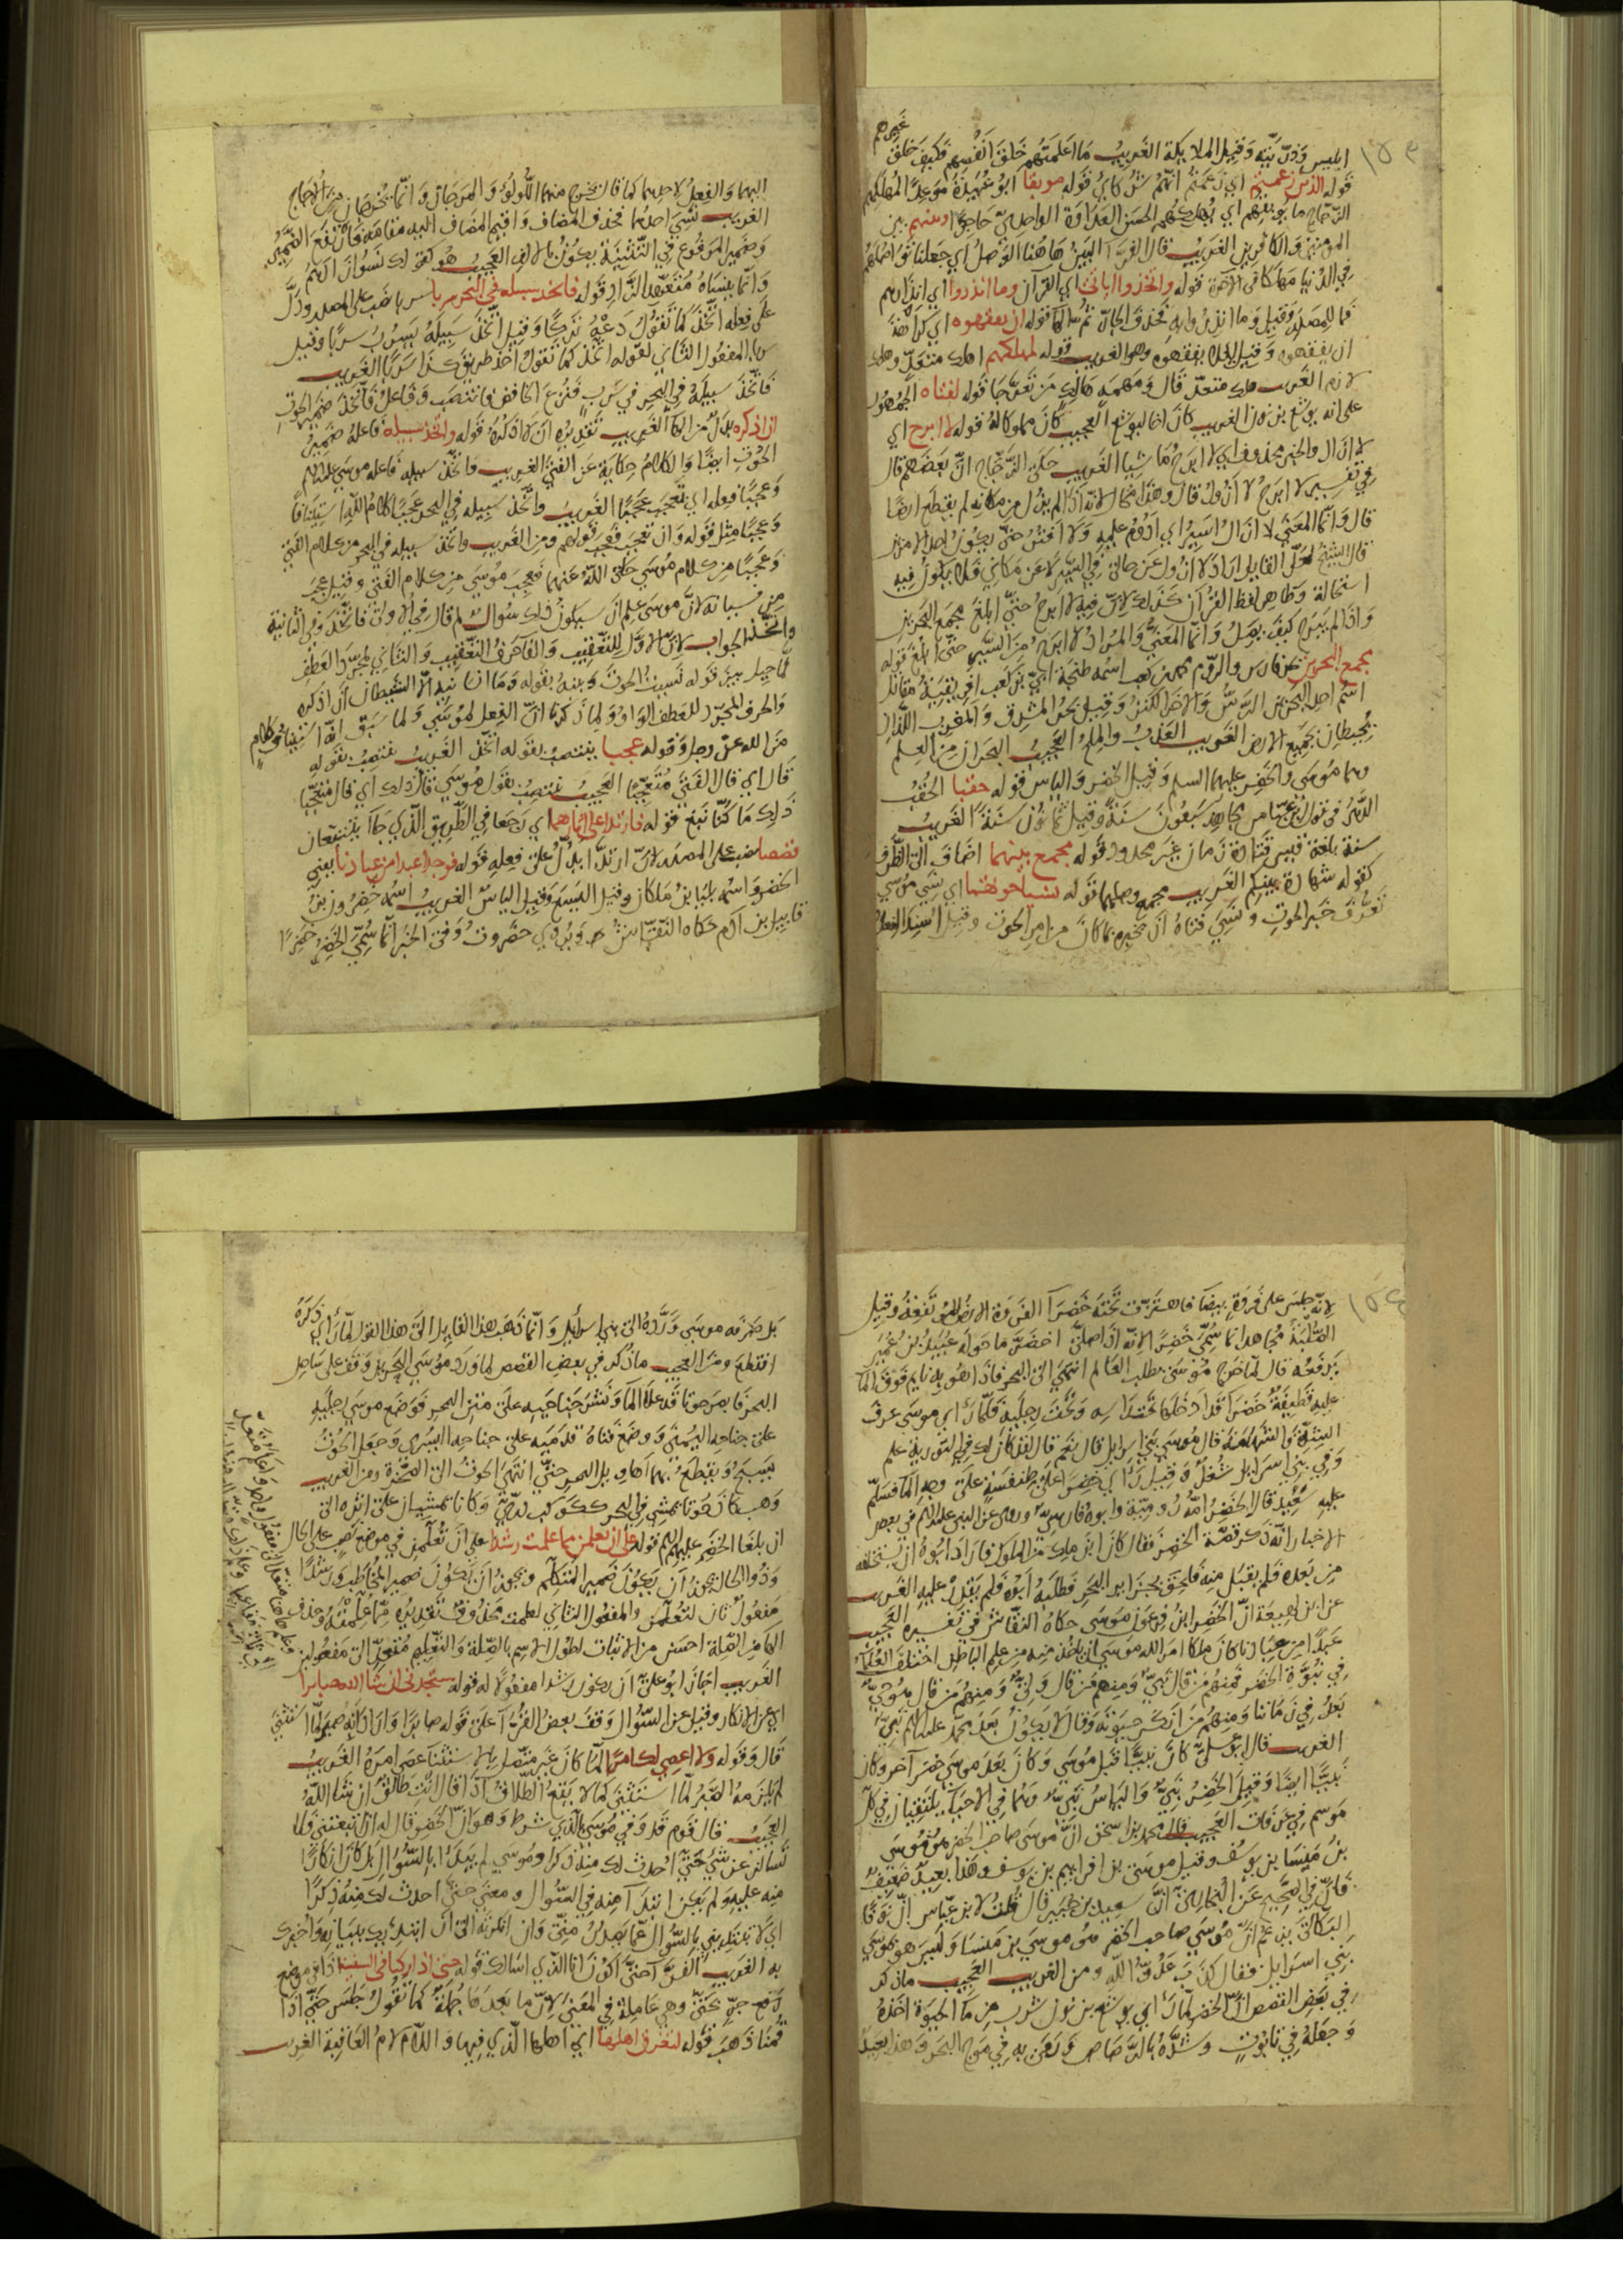 غيرهم
ابليس وذريته وقيل الملايكة الغريب ما اعلمتهم خلق انفسهم فكيف خلق
قوله الذين زعمتم اي زعمتم انهم شركاي قوله موبقا ابو عبيدة موعدا المهلكهم
الزجاج ما يوبقهم اي يهلكهم الحسن العداوة الواحدي حاجزا وبينهم بين
المومنين والكافرين الغريب قال الفرا البين هاهنا الوصل اي جعلنا تواصلهم
في الدنيا مهلكا في الآخرة قوله واتخذوا اياتي اي القرآن وما انذروا اي انذارهم
فما للمصدر وقيل وما انذروا به فحذف الجار ثم الها قوله ان يفقهوه اي كراهة
ان يفقهوه وقيل ليلا يفقهوه وهو الغريب قوله لمهلكهم اهلك متعد وهلك
لازم الغريب هلك متعد قال ومهمه هالك من تعرجا قوله لفتاه الجمهور
على انه يوشع بن نون الغريب كان اخا ليوشع العجيب كان مملوكا له قوله لا ابرح اي
لا ازال والخبر محذوف اي لا ابرح ماشيا الغريب حكى الزجاج ان بعضهم قال
في تفسير لا ابرح لا ازول قال وهذا محال لانه اذا لم يزل من مكانه لم يقطع ارضا
قال وانما المعنى لا ازال اسير اي ادوم عليه ولا افتر حتى يكون احد الامرين
قال الشيخ لعل القايل اراد لا ازول عن حالتي في السير لا عن مكاني فلا يكون فيه
استحالة وظاهر لفظ القرآن كذلك لان فيه لا ابرح حتى ابلغ مجمع البحرين
واذا لم يبرح كيف يوصل وانما المعنى والمراد لا ابرح من السير حتى ابلغ قوله
مجمع البحرين بحر فارس والروم محمد بن كعب اسمه طنجة ابي بن كعب افريقية مقاتل
اسم احد البحرين الرس والاخر الكنز وقيل بحر المشرق والمغرب اللذان
يحيطان بجميع الارض الغريب العذب والملح العجيب البحران من العلم
وهما موسى والخضر عليهما السلم وقيل الخضر والياس قوله حقبا الحقب
الدهر في قول ابن عباس مجاهد سبعون سنة وقيل ثمانون سنة الغريب
سنة بلغة قيس قتادة زمان غير محدود قوله مجمع بينهما اضاف الى الظرف
كقوله شهادة بينكم الغريب مجمع وصلهما قوله نسيا حوتهما اي نسي موسى
تعرف خبر الحوت ونسي فتاه ان يخبره بما كان من امر الحوت وقيل اسند الفعل
اليهما والفعل لاحدهما كما قال يخرج منهما اللؤلؤ والمرجان وانما يخرجان من الاجاج
الغريب نسي احدهما فحذف المضاف واقيم المضاف اليه مقامه فارتفع الضمير
وضمير المرفوع في التثنية يكون بالالف العجيب هو كقولك نسوا زادهم
وانما ينساه متعهد الزاد قوله فاتخذ سبيله في البحر سربا سربا نصب على المصدر ودل
على فعله اتخذ كما تقول دعه تركا وقيل اتخذ سبيله يسرب سربا وقيل
سربا المفعول الثاني لقوله اتخذ كما تقول اخذ طريق كذا سربا الغريب
فاتخذ سبيله في البحر في سرب فنزع الخافض فانتصب وفاعل فاتخذ ضمير الحوت
ان اذكره بدل من الها الغريب تقديره ان لا اذكره قوله واتخذ سبيله فاعله ضمير
الحوت ايضا والكلام حكاية عن الفتى الغريب واتخذ سبيله فاعله موسى عليه السلم
وعجبا فعله اي تعجب عجبا الغريب واتخذ سبيله في البحر عجبا كلام الله استينافا
وعجبا مثل قوله وان تعجب فعجب قولهم ومن الغريب واتخذ سبيله في البحر من كلام الفتى
وعجبا من كلام موسى حكى الله عنهما فعجب موسى من كلام الفتى وقيل عجب
من نسيانه لان موسى علم ان سيكون ذلك سوال لم قال في الاولى فاتخذ وفي الثانية
واتخذ الجواب لان الاول للتعقيب والفا حرف التعقيب والثاني لمجرد العطف
لما حيل بين قوله نسيت الحوت وبينه بقوله وما انسانيه الا الشيطان ان اذكره
والحرف المجرد للعطف الواو ولما ذكرنا ان الفعل لموسى ولما سبق انه استيناف كلام
من الله عز وجل وقوله عجبا ينتصب بقوله اتخذ الغريب ينتصب بقوله
قال اي قال الفتى متعجبا العجيب ينتصب بقول موسى قال ذلك اي قال متعجبا
ذلك ما كنا نبغ قوله فارتدا على اثارهما اي رجعا في الطريق الذي جاآ يتتبعان
قصصا نصب على المصدر لان ارتدا يدل على فعله قوله فوجدا عبدا من عبادنا يعني
الخضر واسمه بليا بن ملكان وقيل اليسع وقيل الياس الغريب اسمه خضرون بن
قابيل بن آدم حكاه النقاش ويروي حضرون وفي الخبر انما سمي الخضر خضرا
لانه جلس على فروة بيضا فاهتزت تحته خضرا الفروة الارض المرتفعة وقيل
الصلبة مجاهد انما سمي خضرا لانه اذا صلى اخضر ما حوله عبيد بن عمير
يرفعه قال لما خرج موسى يطلب العالم انتهى الى البحر فاذا هو به نايم فوق الما
عليه قطيفة خضرا قد ادخلها تحت راسه وتحت رجليه فلما راى موسى عرف
قال موسى بني اسرايل قال نعم قال لقد كان لك في التورية علم
وفي بني اسرايل شغل وقيل راى خضرا على طنفسة على وجه الما فسلم
عليه
الاخبار انه ذكر قصة الخضر فقال كان ابن ملك من الملوك فاراد ابوه ان يستخلفه
من بعده فلم يقبل منه فلحق بجزاير البحر فطلبه ابوه فلم يقدر عليه الغريب
عن ابن لهيعة ان الخضر ابن فرعون موسى حكاه النقاش في تفسيره العجيب
عبدا من عبادنا كان ملكا امر الله موسى ان ياخذ منه من علم الباطن اختلف العلما
في نبوة الخضر فمنهم من قال نبي ومنهم من قال ولي ومنهم من قال
بعد في زماننا ومنهم من انكر حيوته وقال لا يكون بعد محمد عليه السلم نبي
الغريب قال ابو علي كان نبيا قبل موسى وكان بعد موسى خضر آخر وكان
نبيا ايضا وقيل الخضر نبي والياس نبي وهما في الاحياء يلتقيان في كل
موسم في عرفات العجيب قال محمد بن اسحق ان موسى صاحب الخضر هو موسى
بن ميشا بن يوسف وقيل موسى بن افراييم بن يوسف وهذا بعيد ضعيف
فان في الصحيح عن البخاري ان سعيد بن جبير قال قلت لابن عباس ان نوفا
البكالي يزعم ان موسى صاحب الخضر هو موسى بن ميشا وليس هو بموسى
بني اسرايل فقال كذب عدو الله ومن الغريب العجيب ما ذكر
في بعض القصص ان الخضر لما راى يوشع بن نون شرب من ما الحيوة اخذه
وجعله في تابوت وشده بالرصاص ورمى به في موج البحر وهذا بعيد
بل صرفه موسى ورده الى بني اسرايل وانما ذهب هذا القايل الى هذا القول لما راى ذكره
انقطع ومن العجيب ما ذكر في بعض القصص لما ورد موسى البحرين وقف على ساحل
البحر فابصر حوتا قد علا الما ونشر جناحيه على متن البحر فوضع موسى رجليه
على جناحه اليمنى ووضع فتاه قدميه على جناحه اليسرى وجعل الحوت
يسبح ويقطع بهما اهاويل البحر حتى انتهى الحوت الى الصخرة ومن الغريب
وهب كان حوتا يمشي في البحر ككوكب دري وكانا يمشيان على اثره الى
ان بلغا الخضر عليهم السلم قوله على ان تعلمن مما علمت رشدا على ان تعلمن في موضع نصب على الحال
وذو الحال يجوز ان يكون ضمير المتكلم ويجوز ان يكون ضمير المخاطب ورشدا
مفعول ثان لتعلمن والمفعول الثاني لعلمت محذوف تقديره مما علمته وحذف
الها من الصلة احسن من الاثبات لطول الاسم بالصلة والتعليم متعد الى مفعولين
الغريب اجاز ابو علي ان يكون رشدا مفعولا له قوله ستجدني ان شا الله صابرا
اي عن الانكار وقيل عن السؤال وقف بعض القرا على قوله صابرا واراد انه صبر لما استثنى
قال وقوله ولا اعصي لك امرا لما كان غير متصل بالاستثنا عصى امره الغريب
لم يلزمه الصبر لما استثنى كما لا يقع الطلاق اذا قال انت طالق ان شا الله
العجيب قال قوم قد وفى موسى بالذي شرط وهو ان الخضر قال له ان اتبعتني فلا
تسالني عن شي حتى احدث لك منه ذكرا وموسى لم يبدا بالسؤال بل كان انكارا
منه عليه ولم يكن ابتدا منه في السؤال ومعنى حتى احدث لك منه ذكرا
اي لا تبتديني بالسؤال عما يصدر مني وان انكرته الى ان ابتدئك ببيانه واخبرك
به الغريب الفرا حتى اكون انا الذي اسالك قوله حتى اذا ركبا في السفينة اذا في موضع
رفع جر بحتى وهي عاملة في المعنى لان ما بعدها جملة كما تقول جلس حتى اذا
قمنا ذهب قوله لتغرق اهلها اي اهلها الذي فيها واللام لام العاقبة الغريب